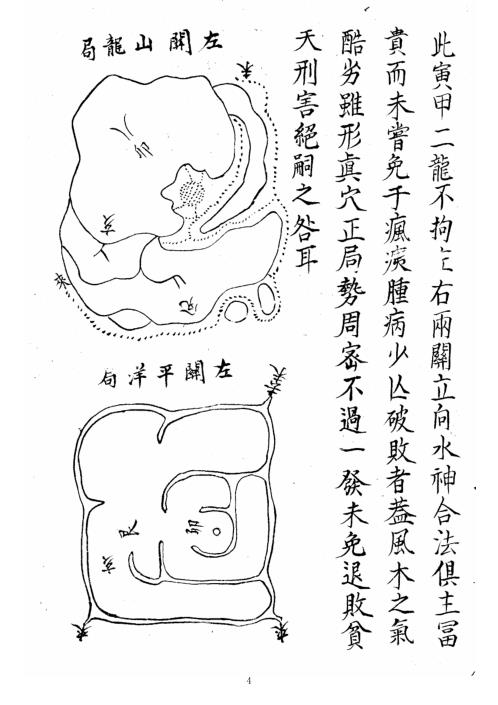 此寅甲二龍不拘左右兩關立向水神合法俱主冨
貴而未嘗免于瘋痰腫病少亾破敗者葢風木之氣
酷劣雖形真穴正局勢周密不過一發未免退敗貧
夭刑害絕嗣之咎耳
左關山龍局
未
卯
亥
來
艮
左關平洋局
卯
艮
亥
來
來
4